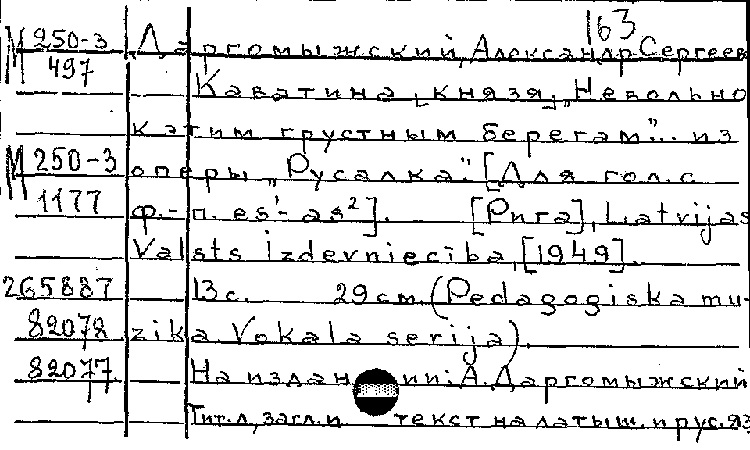 163
М 250-3 Даргомыжский, Александр Сергеев
497 Каватина [князя] „Невольно
к этим грустным берегам"... из
М 250-3 оперы „Русалка". [Для гол. с
1177 ф.-п. es'-as²]. [Рига], Latvijas
Valsts izdevniecība, [1949].
265887 13 с. 29 см. (Pedagogiska mu-
82078 zika Vokala serija).
82077 На издан ии: А. Даргомыжский
Тит. л., загл. и текст на латыш. и рус. яз